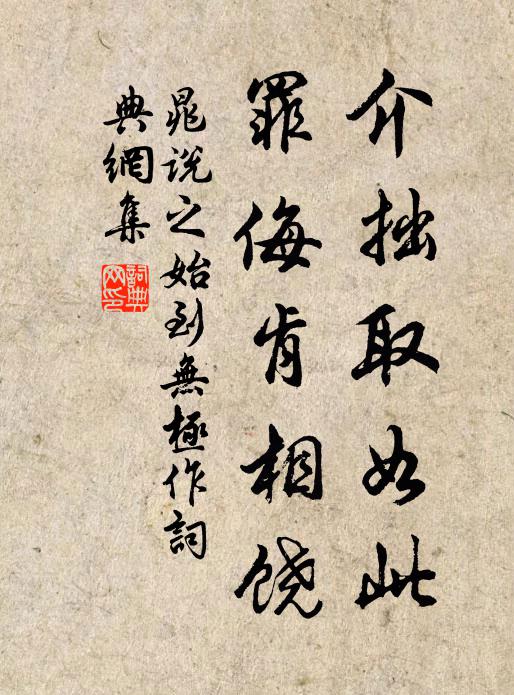 介拙取如此
罪侮肯相饶
晁说之始到無極作詞
典網集
詞典
网印